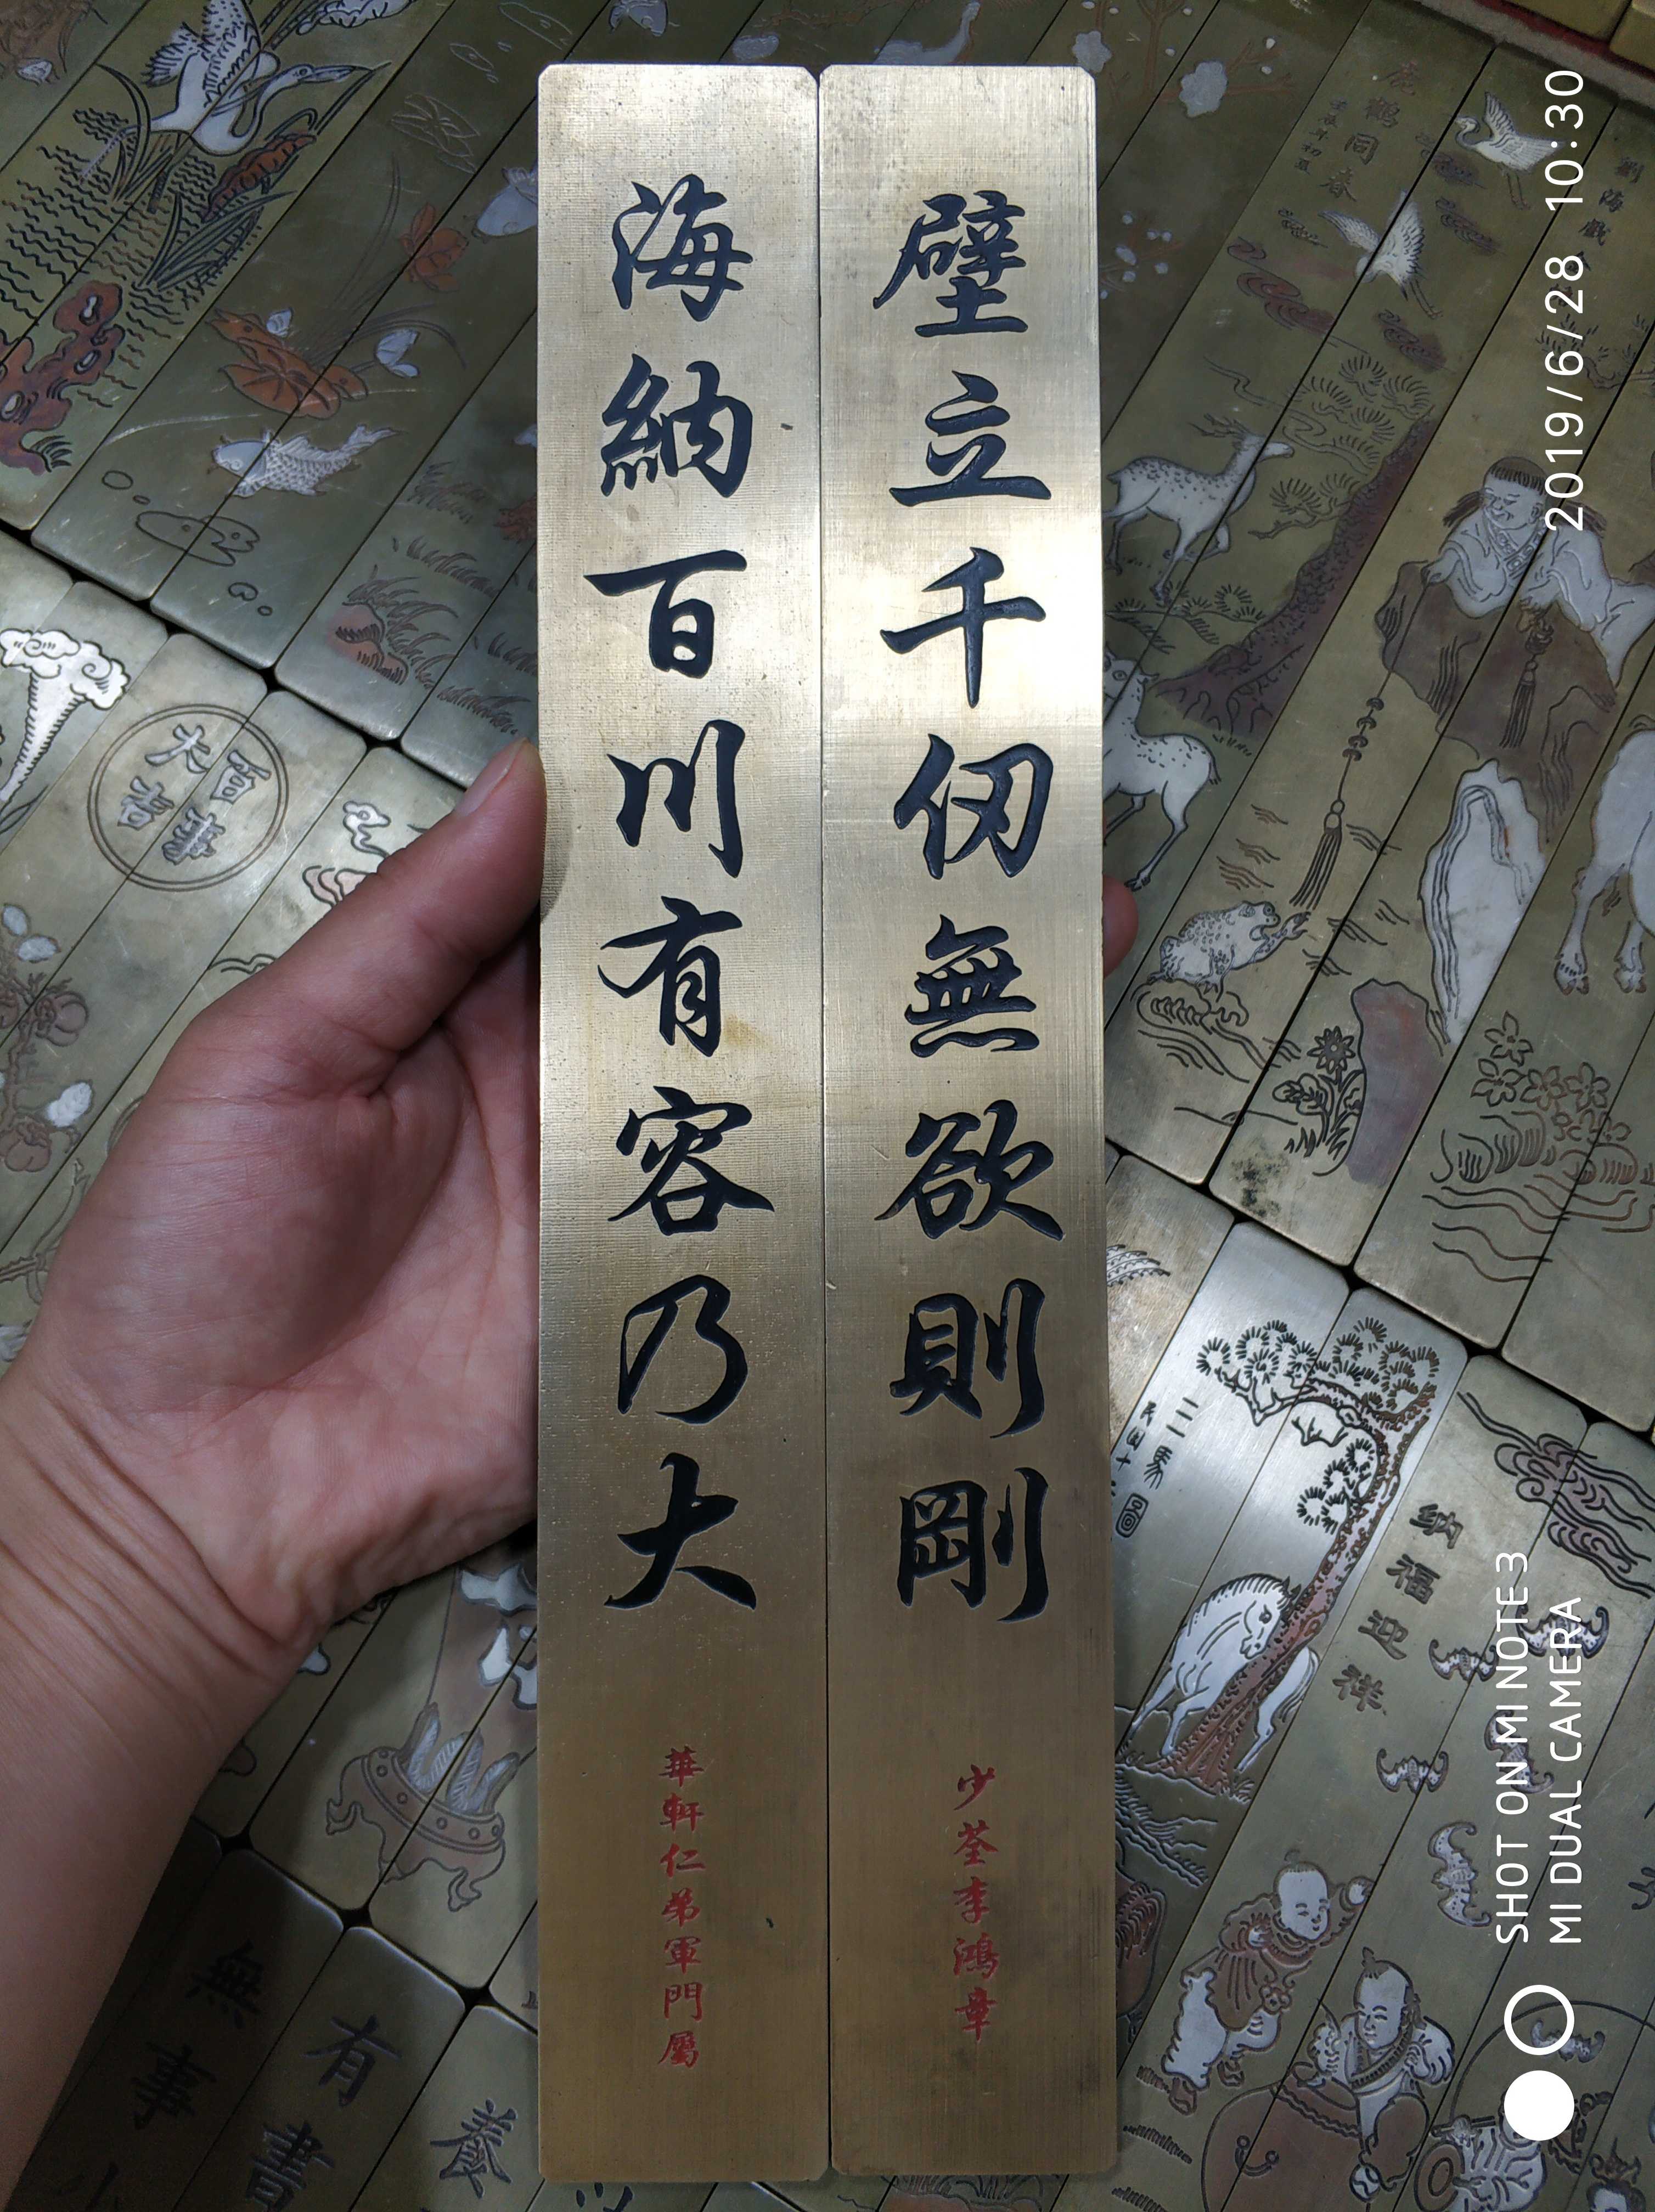 海納百川有容乃大
華軒仁弟軍門屬
壁立千仞無欲則剛
少荃李鴻章
鹿鶴同春
劉海戲
百事大吉
三馬圖
民国十
纳福迎祥
無事
有書
養
2019/6/28 10:30
SHOT ON MI NOTE 3
MI DUAL CAMERA